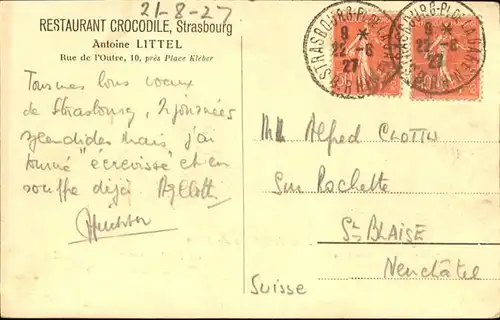 21-8-27
RESTAURANT CROCODILE, Strasbourg
Antoine LITTEL
Rue de l'Outre, 10, près Place Kléber
Tous mes bons voeux
de Strasbourg, 2 journées
splendides mais j'ai
tourné "écrevisse" et en
souffre déjà.
STRASBOURG-PL. DE LA
9 *
22 -8
27
BAS RHIN
9 *
22 -8
27
Alfred CLOTTU
Sur Rochette
St-BLAISE
Neuchâtel
Suisse